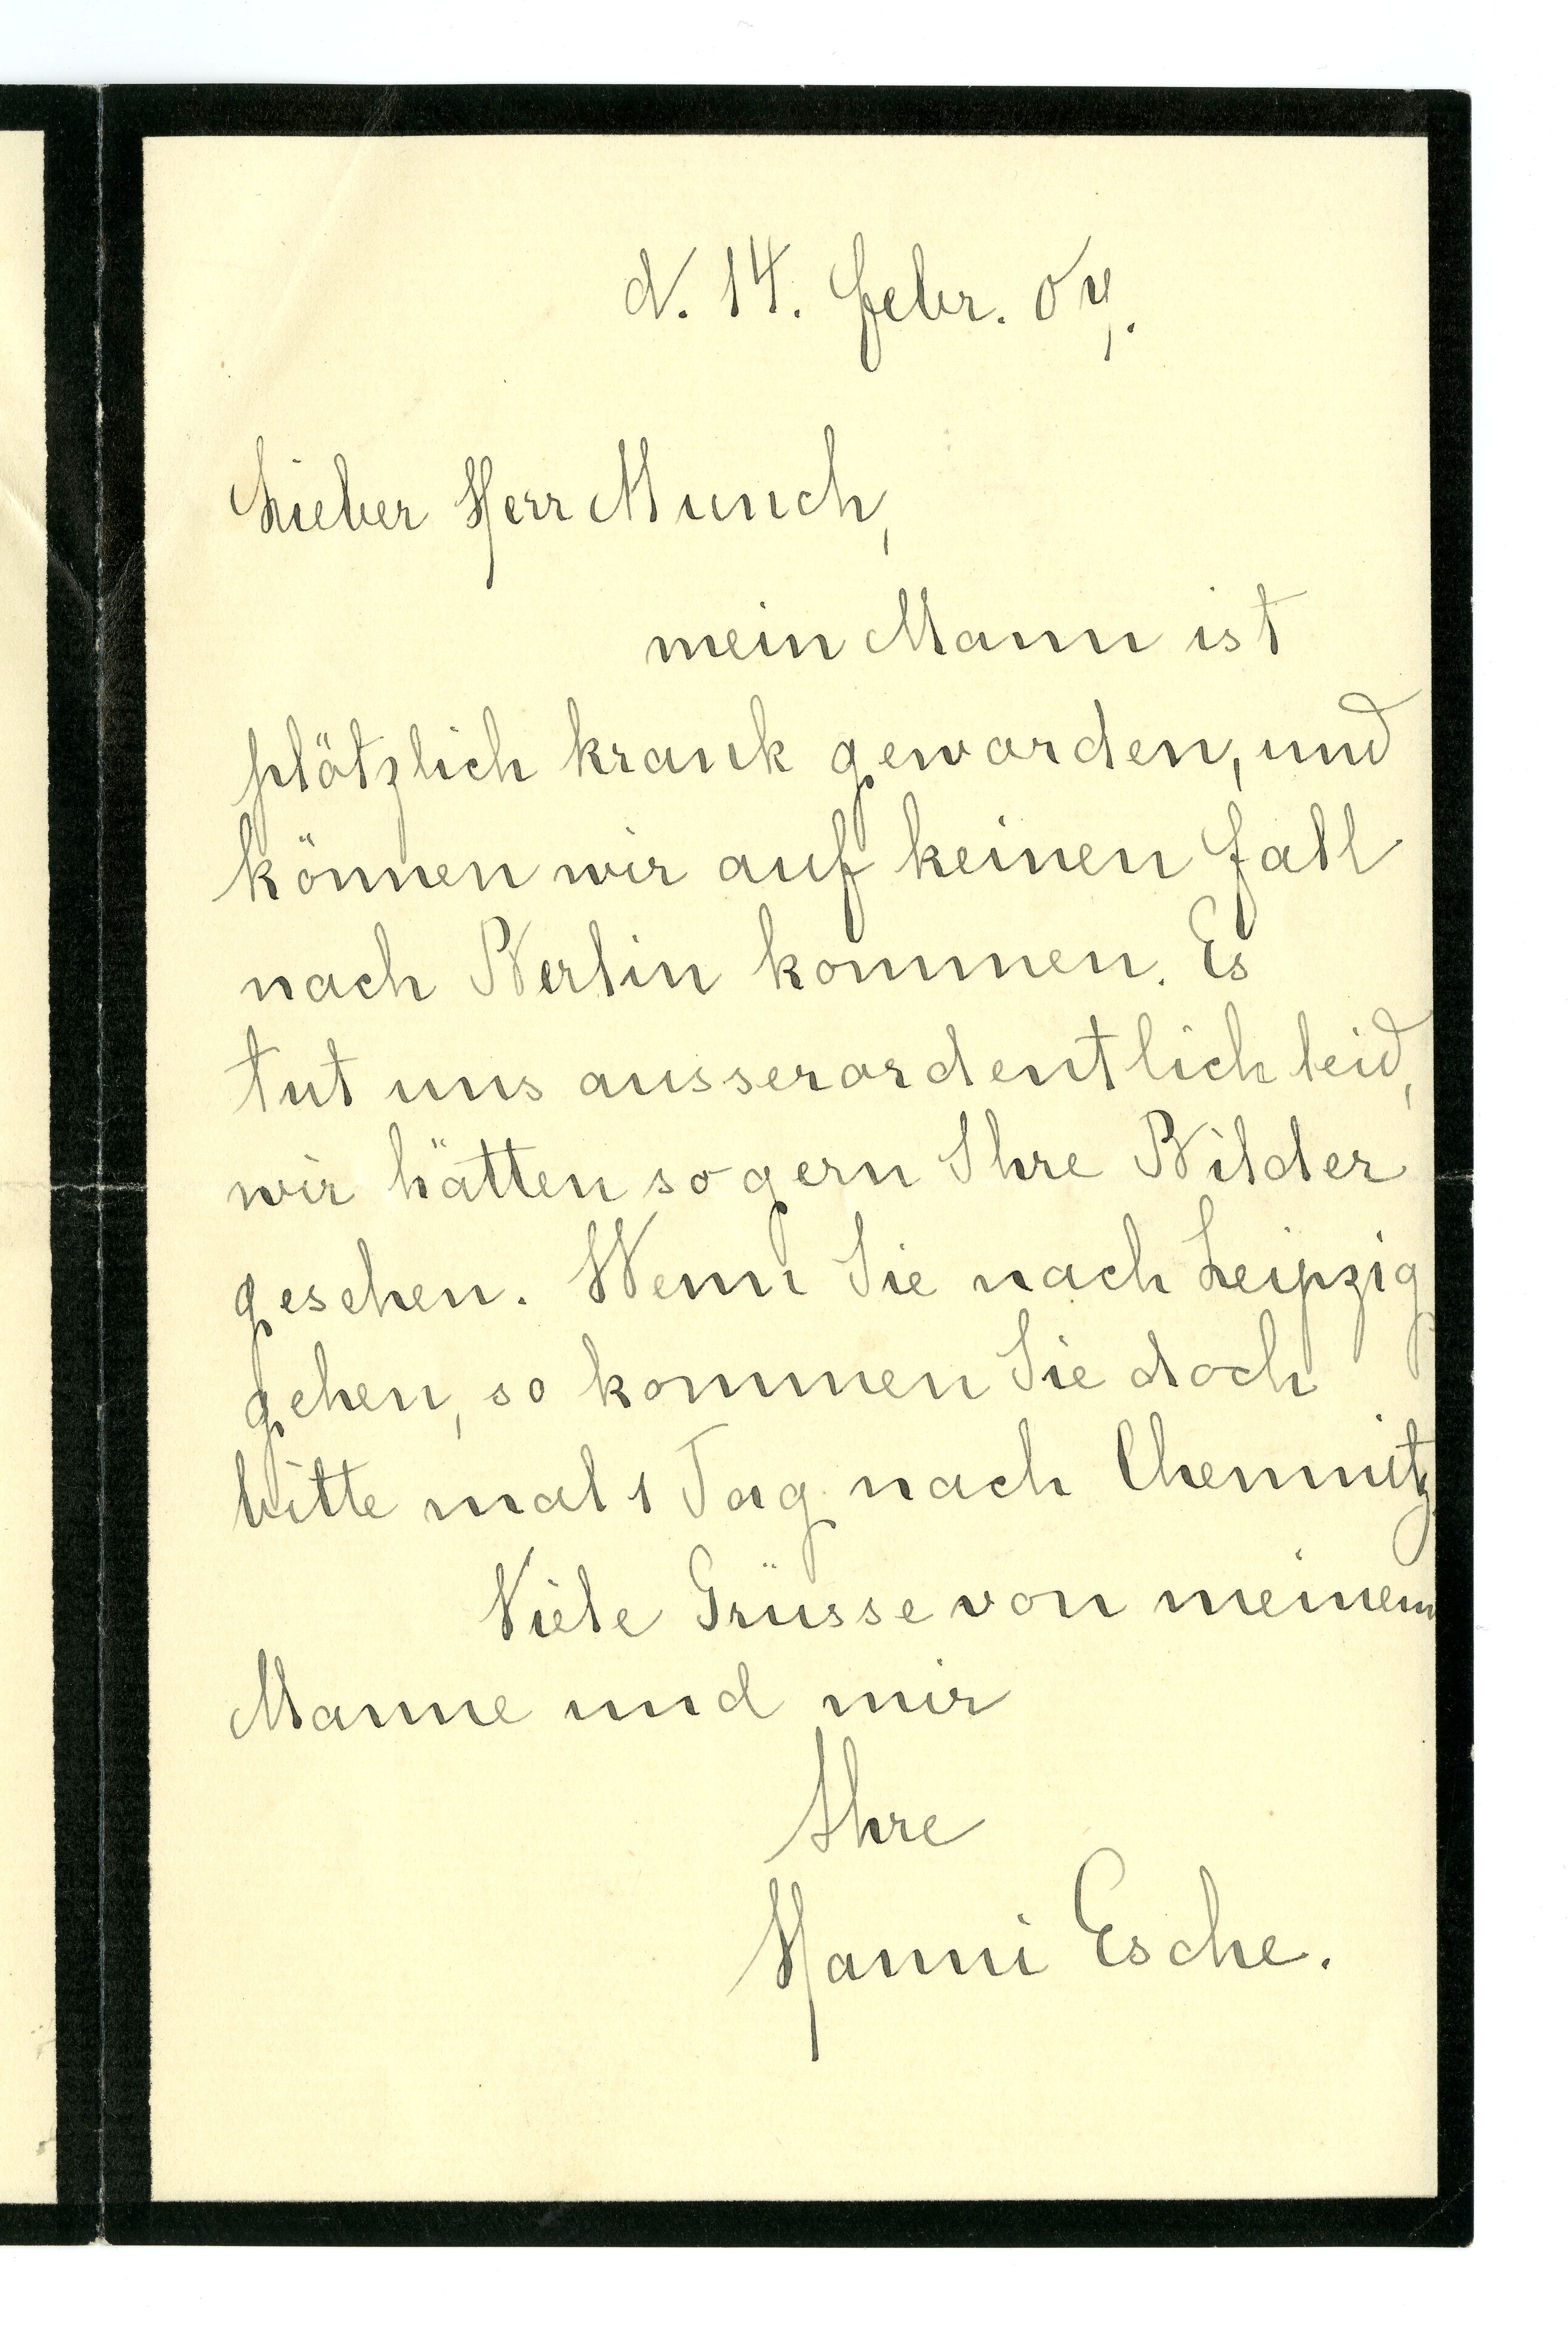 d. 14. Febr. 07.
Lieber Herr Munch,
mein Mann ist
plötzlich krank geworden, und
können wir auf keinen Fall
nach Berlin kommen. Es
tut uns ausserordentlich leid,
wir hätten so gern Ihre Bilder
gesehen. Wenn Sie nach Leipzig
gehen, so kommen Sie doch
bitte mal 1 Tag nach Chemnitz.
Viele Grüsse von meinem
Manne und mir
Ihre
Hanni Esche.